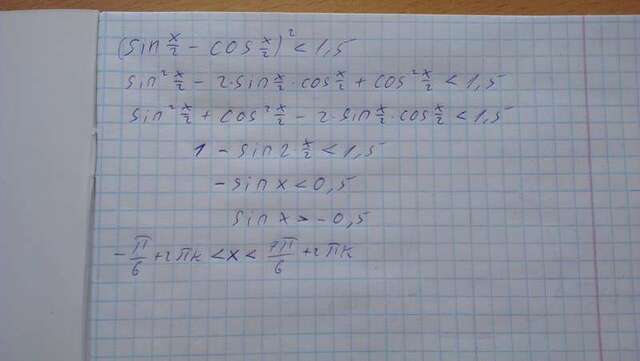 (sin x/2 - cos x/2)² < 1,5
sin² x/2 - 2·sin x/2 · cos x/2 + cos² x/2 < 1,5
sin² x/2 + cos² x/2 - 2·sin x/2 · cos x/2 < 1,5
1 - sin 2· x/2 < 1,5
- sin x < 0,5
sin x > - 0,5
- π/6 + 2πk < x < 7π/6 + 2πk